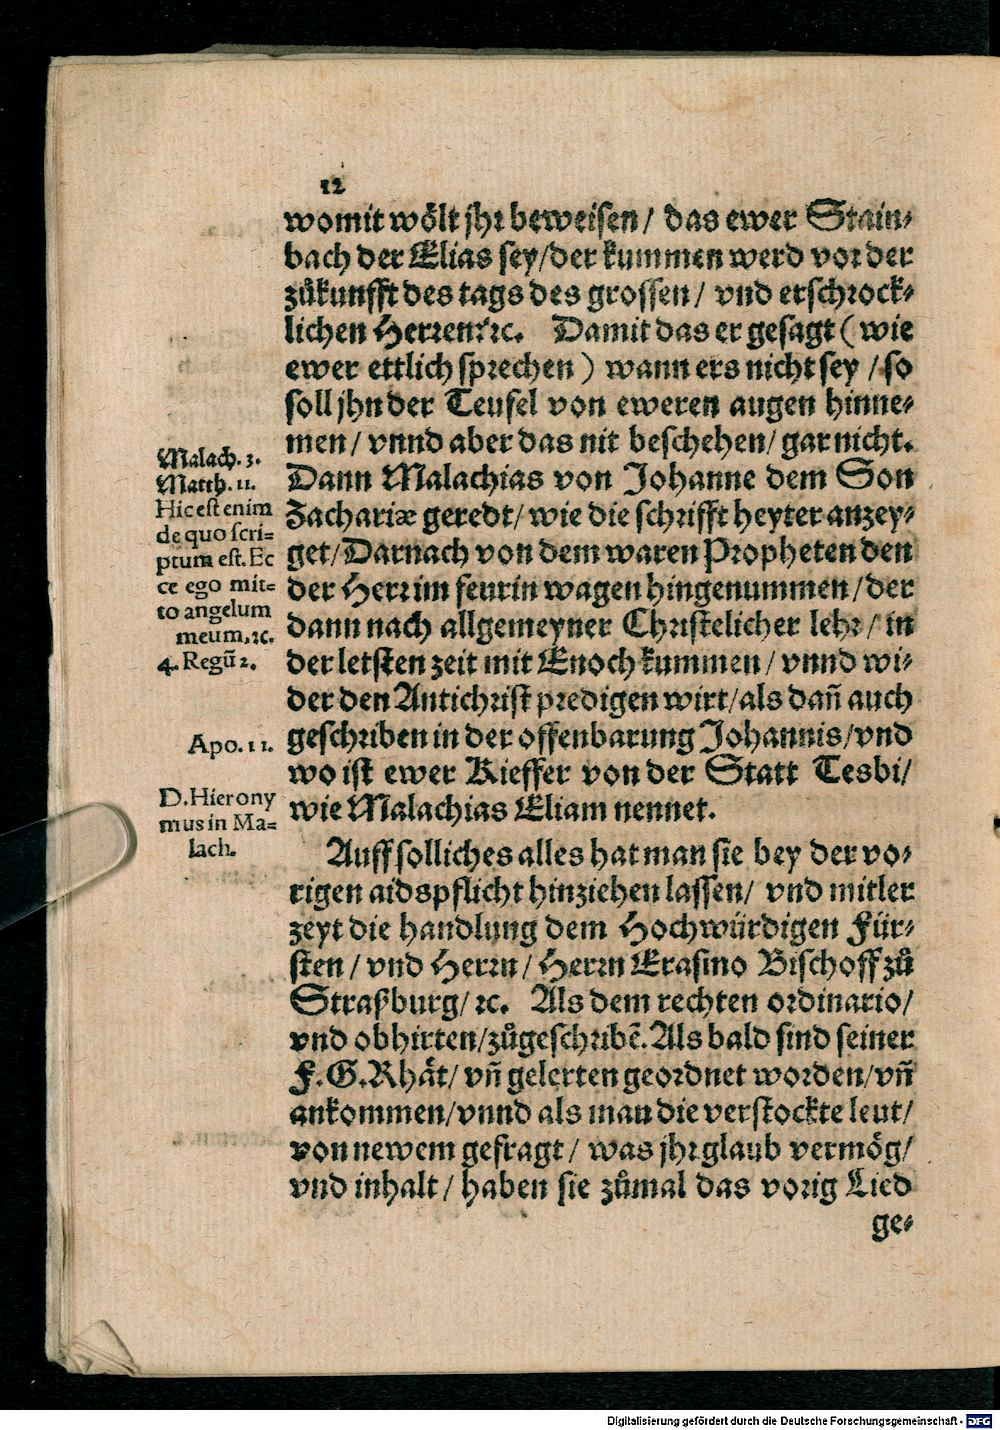 12
womit wölt jhr beweisen/ das ewer Stain⸗
bach der Elias sey/der kummen werd vor der
zůkunfft des tags des grossen/ vnd erschrock⸗
lichen Herren? ꝛc. Damit das er gesagt (wie
ewer ettlich sprechen) wann ers nicht sey /so
soll jhn der Teufel von eweren augen hinne⸗
men/ vnnd aber das nit beschehen/ gar nicht.
Dann Malachias von Johanne dem Son
Zachariæ geredt/ wie die schrifft heyter anzey⸗
get/Darnach von dem waren Propheten den
der Herr im feurin wagen hingenummen/der
dann nach allgemeyner Christelicher lehr/ in
der letsten zeit mit Enoch kummen/ vnnd wi⸗
der den Antichrist predigen wirt/als dañ auch
geschriben in der offenbarung Johannis/vnd
wo ist ewer Kieffer von der Statt Tesbi/
wie Malachias Eliam nennet.
Malach. 3.
Matth. 11.
Hic est enim
de quo scri=
ptum est. Ec
ce ego mit=
to angelum
meum, ꝛc.
4. Regũ 2.
Apo. 11.
D. Hierony
mus in Ma=
lach.
Auff solliches alles hat man sie bey der vo⸗
rigen aidspflicht hinziehen lassen/ vnd mitler
zeyt die handlung dem Hochwürdigen Für⸗
sten/ vnd Herrn/ Herrn Erasmo Bischoff zů
Straßburg/ ꝛc. Als dem rechten ordinario/
vnd obhirten/zůgeschribẽ. Als bald sind seiner
F. G. Rhät/ vñ gelerten geordnet worden/vñ
ankommen/vnnd als man die verstockte leut/
von newem gefragt/ was jhr glaub vermög/
vnd inhalt/ haben sie zůmal das vorig Lied
ge⸗
Digitalisierung gefördert durch die Deutsche Forschungsgemeinschaft - DFG